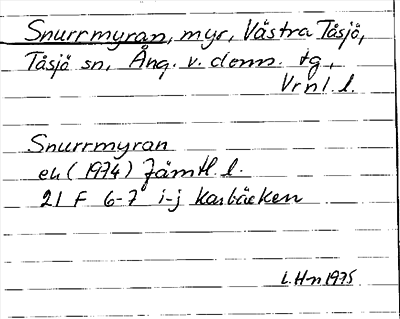 Snurrmyran, myr, Västra Tåsjö,
Tåsjö sn, Ång. v. doms. tg,
Vrnl. l.
Snurrmyran
ek (1974) Jämtl. l.
21 F 6-7 i-j Karbäcken
L. H-n 1975